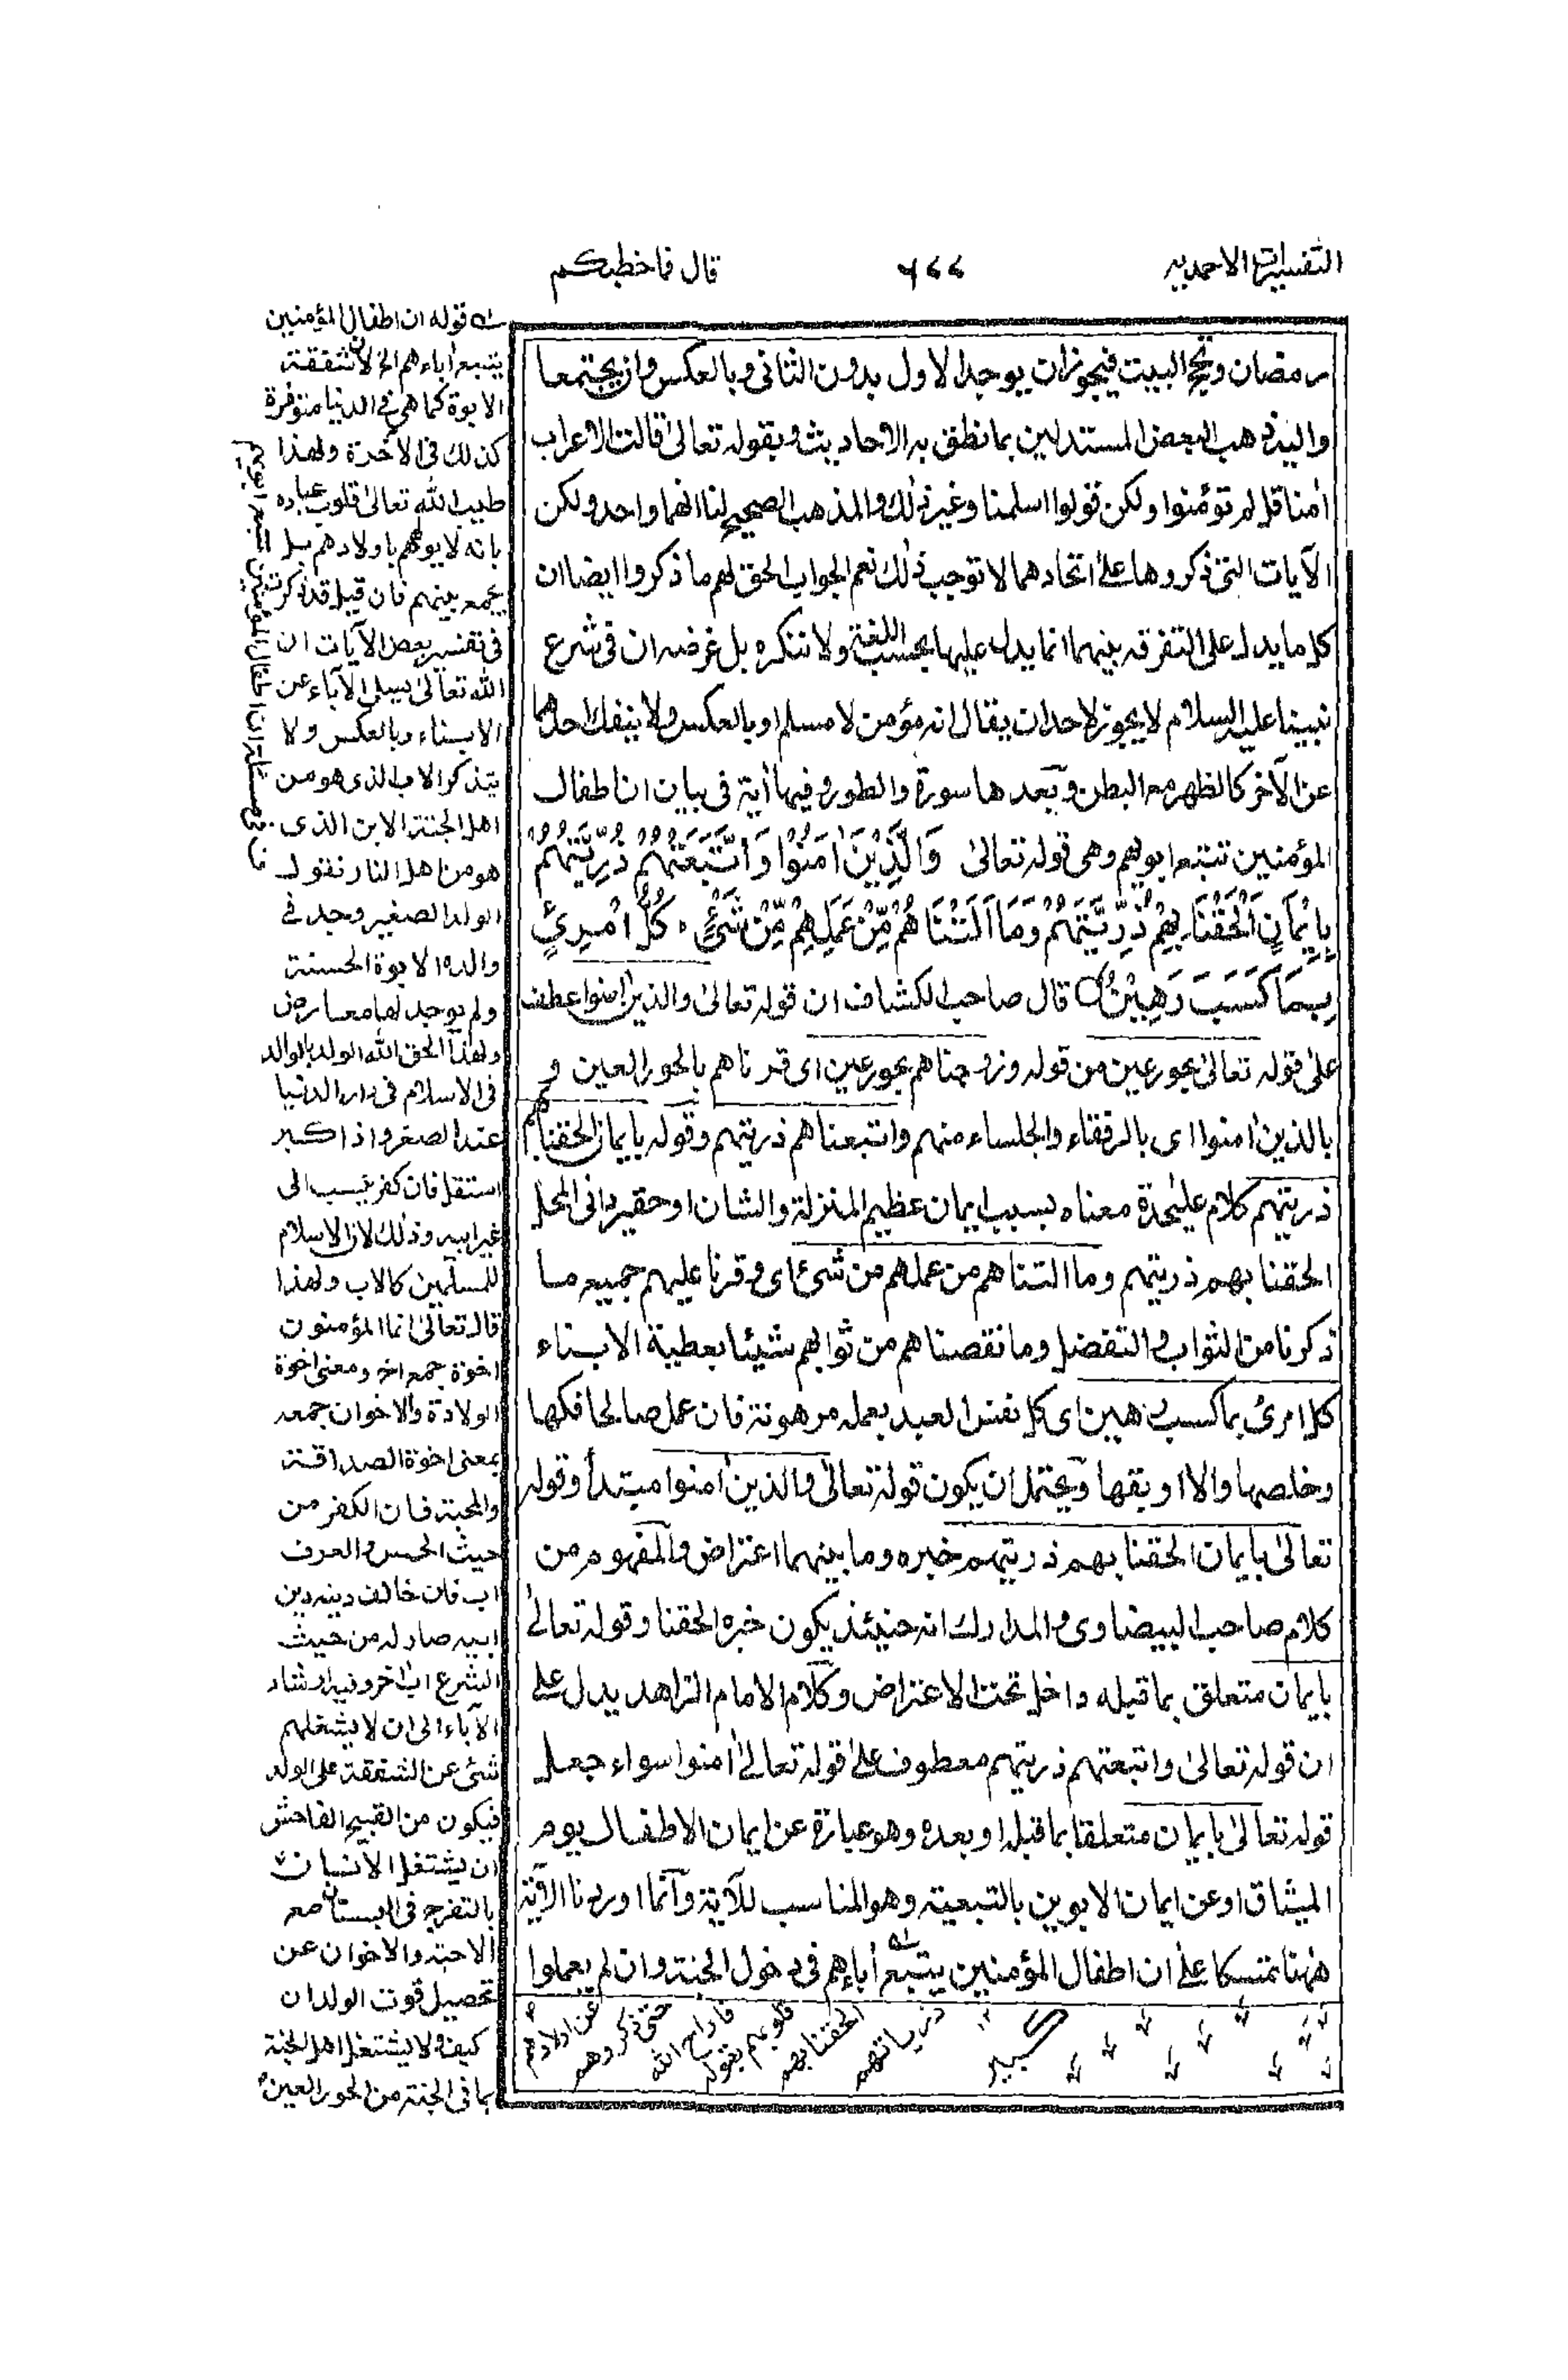 التفسيرات الاحمديه
٦٧٧
قال فما خطبكم
رمضان ويحج البيت فيجوز ان يوجد الاول بدون الثانى وبالعكس وان يجتمعا
واليه ذهب البعض المستدلين بما نطق به الاحاديث وبقوله تعالىٰ قالت الاعراب
اٰمنا قل لم تؤمنوا ولكن قولوا اسلمنا وغير ذٰلك والمذهب الصحيح لنا انهما واحد ولكن
الآيات التى ذكروها علىٰ اتحادهما لا توجب ذٰلك نعم الجواب الحق لهم ما ذكروا ايضا ان
كل ما يدل على التفرقه بينهما انما يدل عليها بحسب اللغة ولا ننكره بل غرضه ان فى شرع
نبينا عليه السلام لا يجوز لاحد ان يقال انه مؤمن لا مسلم او بالعكس ولا ينفك احدهما
عن الآخر كالظهر مع البطن وبعدها سورة والطور وفيها اٰية فى بيان ان اطفال
المؤمنين تتبع ابويهم وهى قوله تعالىٰ وَالَّذِيْنَ اٰمَنُوْا وَاتَّبَعَتْهُمْ ذُرِّيَّتُهُمْ
بِاِيْمَانٍ اَلْحَقْنَا بِهِمْ ذُرِّيَّتَهُمْ وَمَا اَلَتْنَاهُمْ مِّنْ عَمَلِهِمْ مِّنْ شَىْءٍ كُلُّ امْرِئٍ
بِمَا كَسَبَ رَهِيْنٌ قال صاحب الكشاف ان قوله تعالىٰ والذين اٰمنوا عطف
علىٰ قوله تعالىٰ بحور عين من قوله وزوجناهم بحور عين اى قرناهم بالحور العين و
بالذين اٰمنوا اى بالرفقاء والجلساء منهم واتبعناهم ذريتهم وقوله بايمان الحقنا بهم
ذريتهم كلام عليٰحدة معناه بسبب ايمان عظيم المنزلة والشان او حقير دانى المحل
الحقنا بهم ذريتهم وما التناهم من عملهم من شئ اى وفرنا عليهم جميع ما
ذكرنا من الثواب والتفضل وما نقصناهم من ثوابهم شيئا بعطية الابناء
كل امرئ بما كسب رهين اى كل نفس العبد بعمله مرهونة فان عمل صالحا فكها
وخلصها والا اوبقها ويحتمل ان يكون قوله تعالىٰ والذين اٰمنوا مبتدأ وقوله
تعالىٰ بايمان الحقنا بهم ذريتهم خبره وما بينهما اعتراض والمفهوم من
كلام صاحب البيضاوى والمدارك انه حينئذ يكون خبره الحقنا وقوله تعالىٰ
بايمان متعلق بما قبله داخل تحت الاعتراض وكلام الامام الزاهد يدل علىٰ
ان قوله تعالىٰ واتبعتهم ذريتهم معطوف علىٰ قوله تعالىٰ اٰمنوا سواء جعل
قوله تعالىٰ بايمان متعلقا بما قبله او بعده وهو عبارة عن ايمان الاطفال يوم
الميثاق او عن ايمان الابوين بالتبعية وهو المناسب للآية وانما اوردنا الآية
هٰهنا تمسكا علىٰ ان اطفال المؤمنين يتبع اٰباءهم فى دخول الجنة وان لم يعملوا
له قوله ان اطفال المؤمنين
يتبع اٰباءهم الخ لان شفقة
الابوة كما هى فى الدنيا متوفرة
كذلك فى الآخرة ولهذا
طيب الله تعالىٰ قلوب عباده
بانه لا يولههم باولادهم بل
يجمع بينهم فان قيل قد ذكرت
فى تفسير بعض الآيات ان
الله تعالىٰ يسلى الآباء عن
الابناء وبالعكس ولا
يتذكر الاب الذى هو من
اهل الجنة الابن الذى
هو من اهل النار نقول
الولد الصغير وجد فى
والده الابوة الحسنة
ولم يوجد لها معارض
ولهٰذا الحق الله الولد بالوالد
فى الاسلام فى دار الدنيا
عند الصغر واذا كبر
استقل فان كفر ينسب الى
غير ابيه وذٰلك لان الاسلام
للمسلمين كالاب ولهذا
قال تعالىٰ انما المؤمنون
اخوة جمع اخ ومعنى اخوة
الولادة والاخوان جمعه
بمعنى اخوة الصداقة
والمحبة فان الكفر من
حيث الحس والعرف
اب فان خالف دينه دين
ابيه صار له من حيث
الشرع اب اٰخر وفيه ارشاد
الآباء الى ان لا يشغلهم
شئ عن الشفقة على الولد
فيكون من القبيح الفاحش
ان يشتغل الانسان
بالتفرج فى البستان مع
الاحبة والاخوان عن
تحصيل قوت الولدان
كيف ولا يشتغل اهل الجنة
بما فى الجنة من الحور العين
عن اولادهم
حتى ذكروهم
فاراح الله
قلوبهم بقوله
الحقنا بهم
ذرياتهم
١٢
كبير